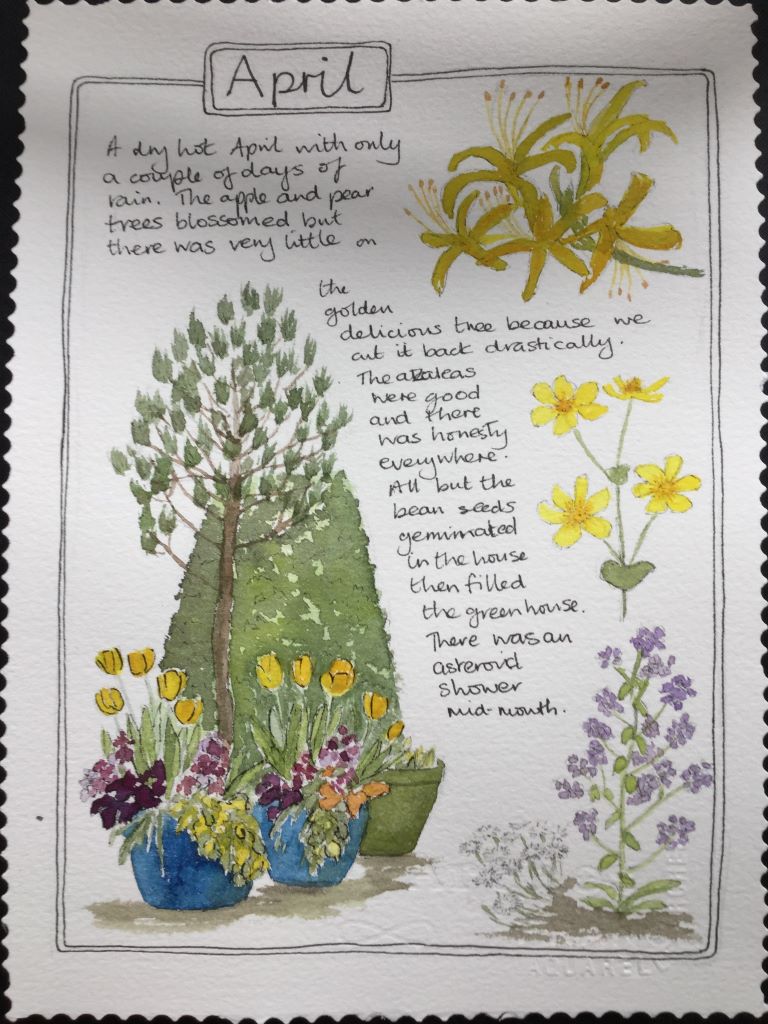 April
A dry hot April with only
a couple of days of
rain. The apple and pear
trees blossomed but
there was very little on
the
golden
delicious tree because we
cut it back drastically.
The azaleas
were good
and there
was honesty
everywhere.
All but the
bean seeds
germinated
in the house
then filled
the greenhouse.
There was an
asteroid
shower
mid-month.